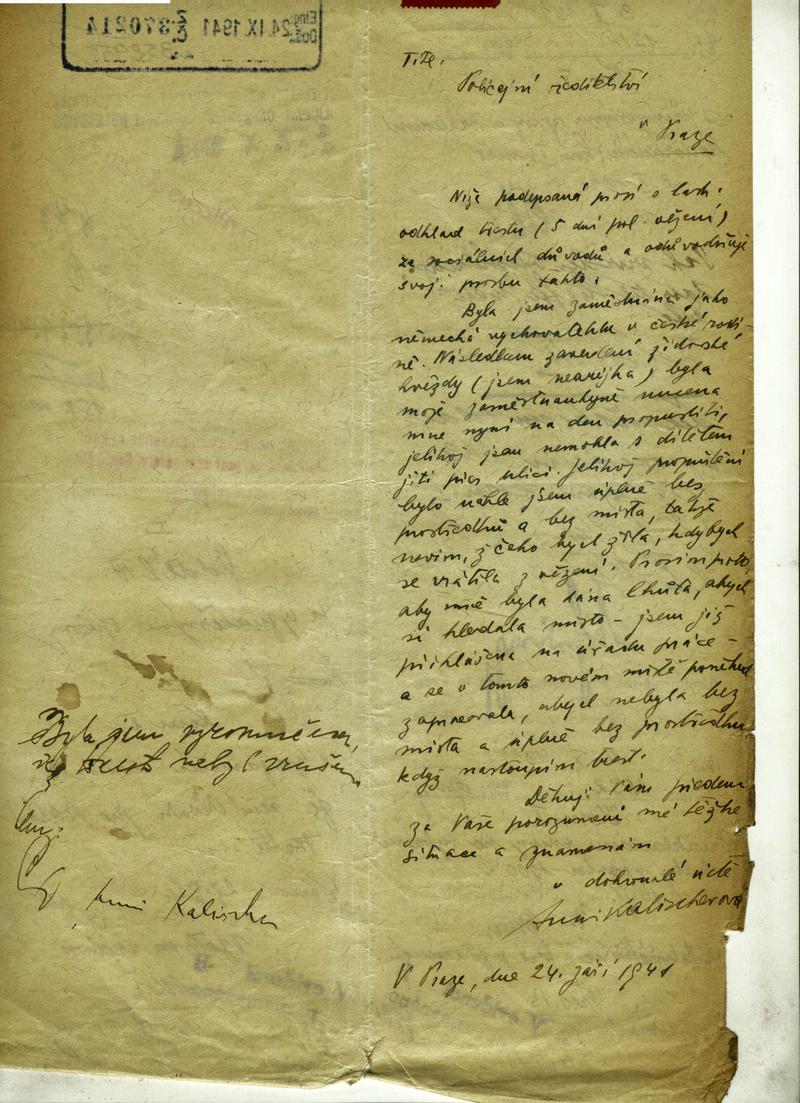 T.Ře.
Policejní ředitelství
v Praze
Níže podepsaná prosí o lask.
odklad trestu (5 dní pol. vězení)
ze sociálních důvodů a odůvodňuje
svoji prosbu takto:
Byla jsem zaměstnána jako
německá vychovatelka v české rodi-
ně. Následkem zavedení židovské
hvězdy (jsem nearijka) byla
moje zaměstnavkyně nucena
mne nyní na den propustiti,
jelikož jsem nemohla s dítětem
jíti přes ulici. Jelikož propuštění
bylo náhlé jsem úplně bez
prostředků a bez místa, takže
nevím, z čeho bych žila, kdybych
se vrátila z vězení. Prosím proto,
aby mně byla dána lhůta, abych
si hledala místo – jsem již
přihlášena na úřadu práce –
a se v tomto novém místě poněkud
zapracovala, abych nebyla bez
místa a úplně bez prostředků
když nastoupím trest.
Děkuji Vám předem
za Vaše porozumění mé těžké
situace a znamenám
v dokonalé úctě
Anni Kalischerová
V Praze, dne 24. září 1941
Byla jsem vyrozuměna,
že trest nebyl zrušen
Anni Kalischer
Eing.
Došlo
24.IX.1941
Z
Č 370214